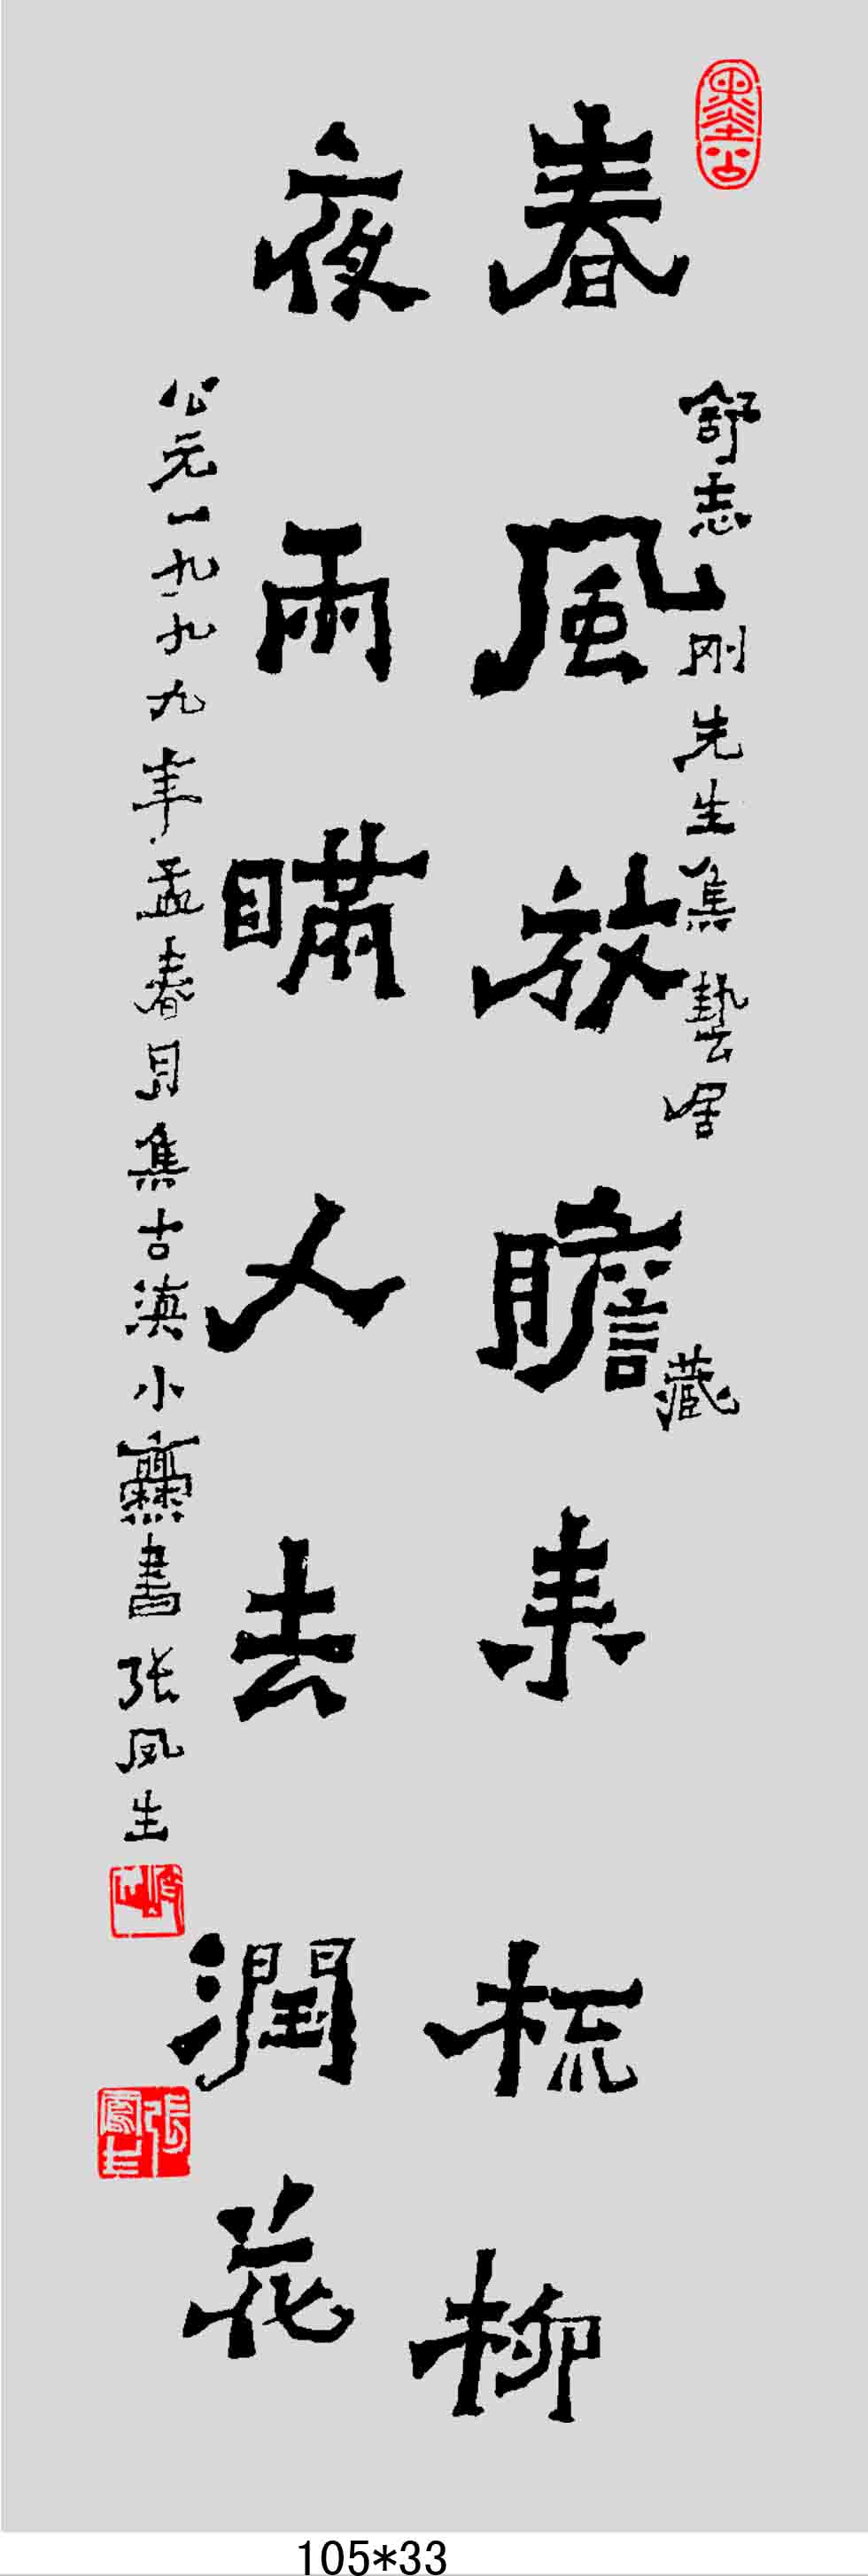 春風放膽来梳柳
舒志刚先生集藝居藏
夜雨瞞人去潤花
公元一九九九年孟春月集古滇小爨書张凤生
張鳳生
105*33